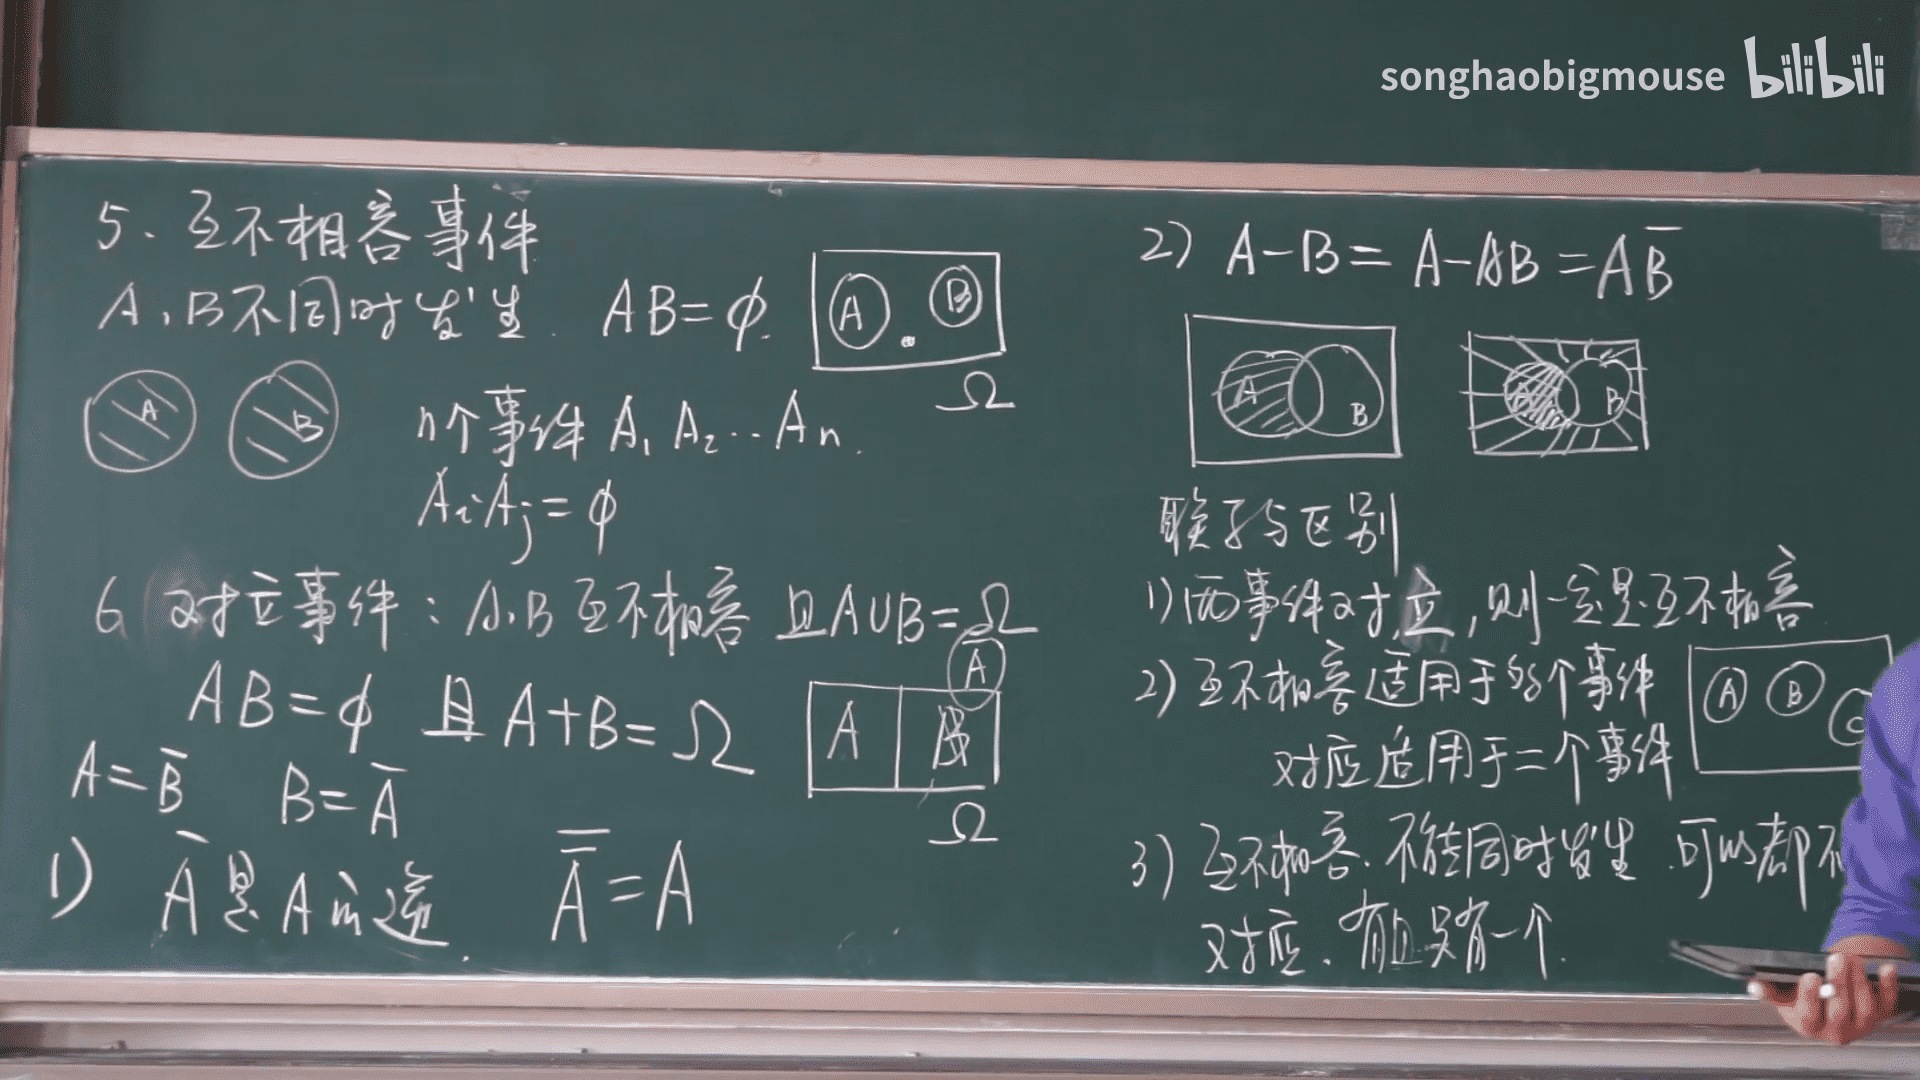 songhaobigmouse bilibili
5、互不相容事件
A、B不同时发生. AB=φ.
A B
Ω
A B
n个事件 A₁ A₂ … Aₙ.
AᵢAⱼ=φ
6 对立事件：A、B互不相容 且A∪B=Ω
AB=φ 且A+B=Ω
A̅
A B
Ω
A=B̅ B=A̅
1) A̅是A的逆. A̿=A
2) A-B=A-AB=AB̅
A B
A B
联系与区别
1)两事件对立,则一定是互不相容
2)互不相容适用于多个事件
对应适用于二个事件
A B C
3)互不相容.不能同时发生.可以都不
对应.有且只有一个.